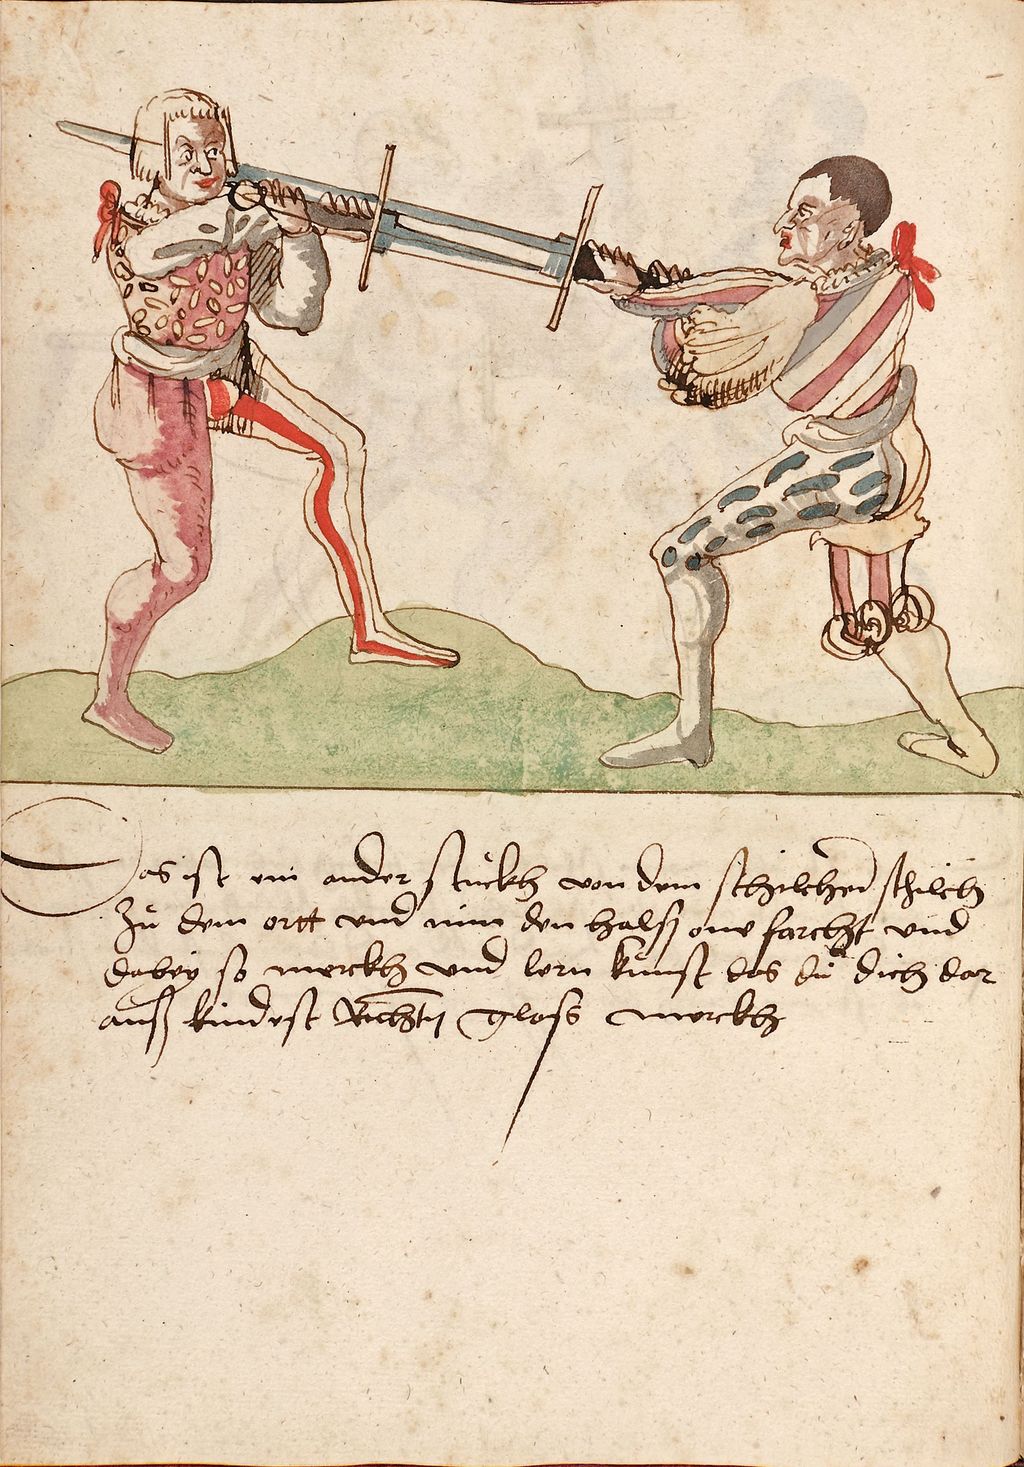 Das ist ein ander stuckh von dem schilchen schilch
Zů dem ortt vnd nim den halß one farcht vnd
dabeÿ so merckh vnd lern kunst das dů dich dar
auß kindest Richtn gloss merckh